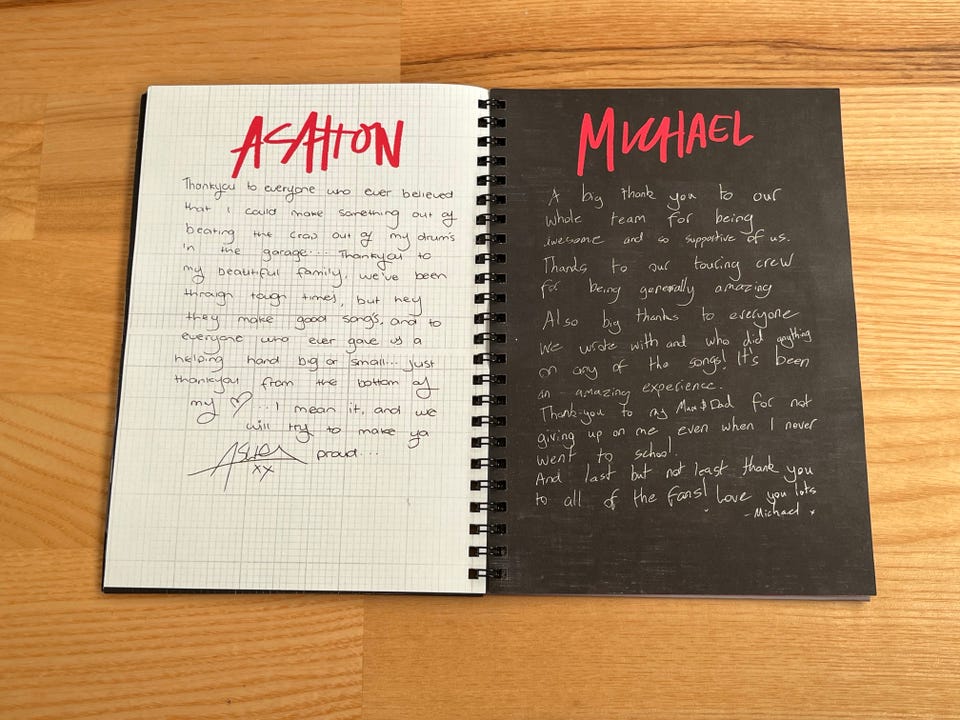 ASHTON
Thankyou to everyone who ever believed
that I could make something out of
beating the crap out of my drum's
in the garage... Thankyou to
my beautiful family, we've been
through tough times, but hey
they make good song's, and to
everyone who ever gave us a
helping hand big or small... just
thankyou from the bottom of
my ♡... I mean it, and we
will try to make ya
proud...
Ashton
xx
MICHAEL
A big thank you to our
whole team for being
awesome and so supportive of us.
Thanks to our touring crew
for being generally amazing
Also big thanks to everyone
we wrote with and who did anything
on any of the songs! It's been
an amazing experience.
Thank-you to my Mum & Dad for not
giving up on me even when I never
went to school.
And last but not least thank you
to all of the fans! Love you lots
-Michael x